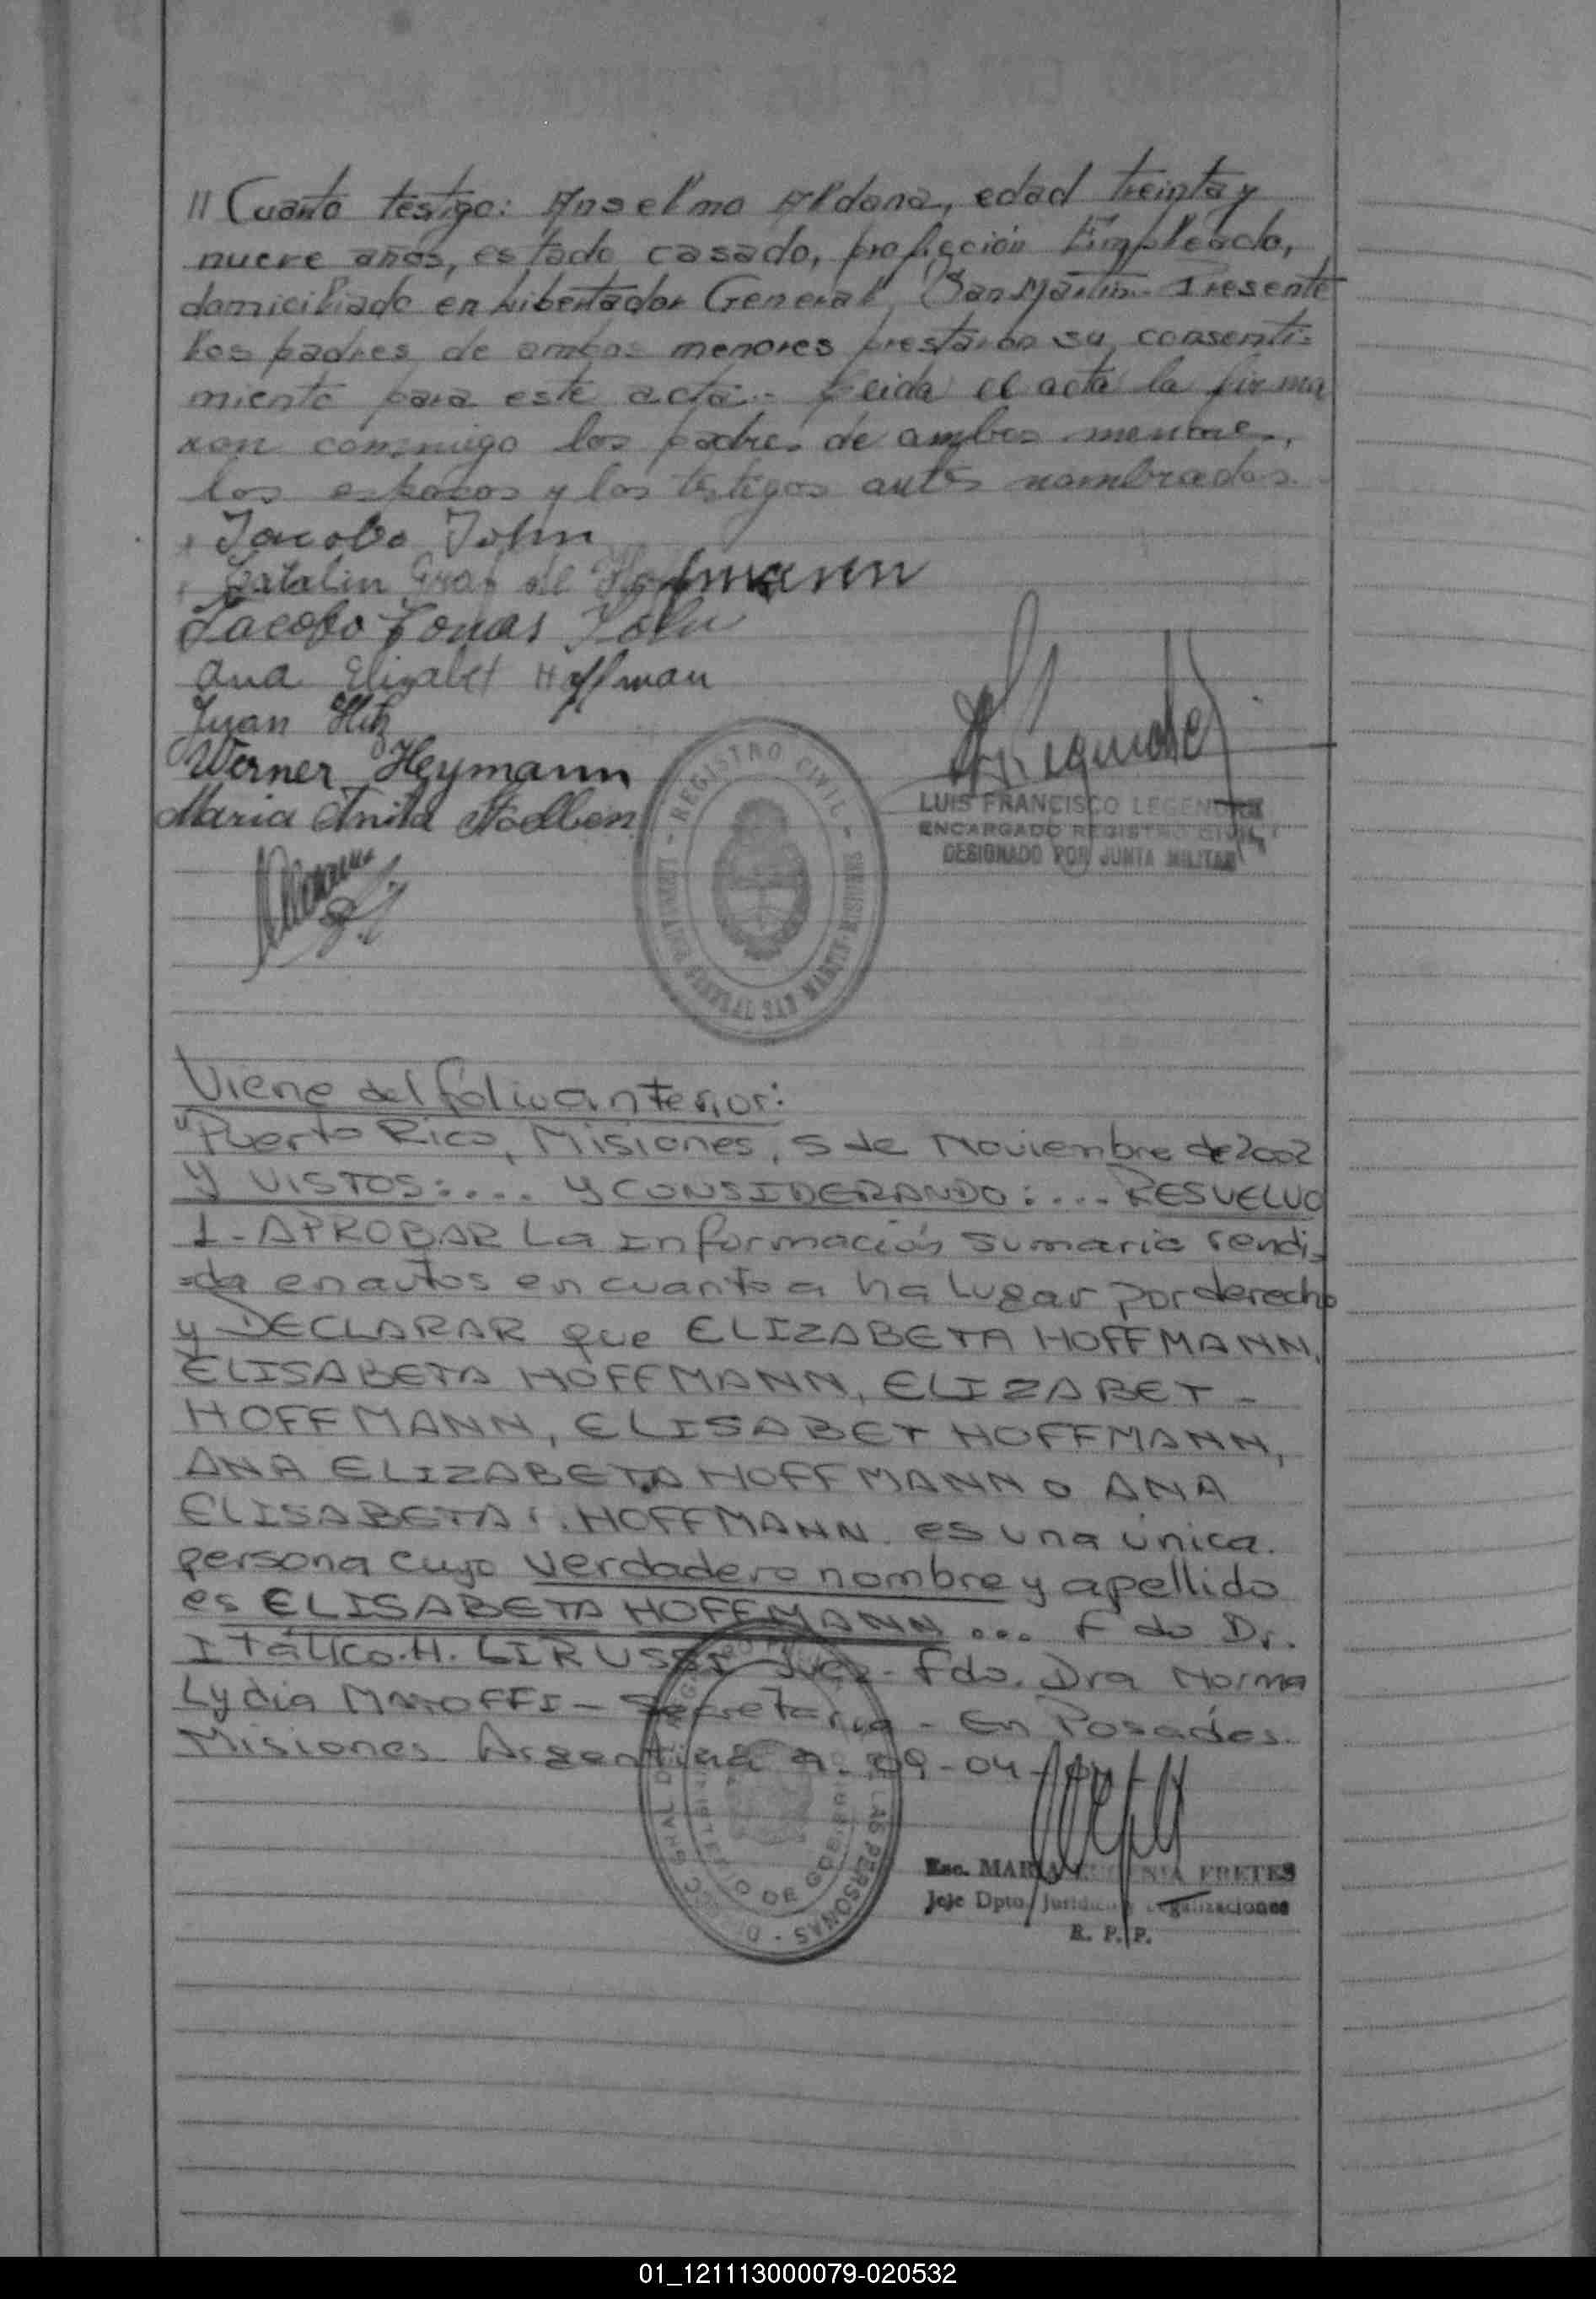 // Cuarto testigo: Anselmo Aldana, edad treinta y
nueve años, estado casado, profección Empleado,
domiciliado en Libertador General San Martin.- Presente
los padres de ambos menores prestaron su consenti=
miento para este acta.- Leida el acta la firma
ron conmigo los padres de ambos menores,
los esposos y los testigos antes nombrados.-
Jacobo John
Catalin Graf de Hoffmann
Jacobo Jonas John
Ana Elizabet Hoffman
Juan Hitz
Werner Heymann
Maria Anita
- REGISTRO CIVIL -
LIBERTADOR GENERAL SAN MARTIN - MISIONES
LUIS FRANCISCO LEGENDRE
ENCARGADO REGISTRO CIVIL
DESIGNADO POR JUNTA MILITAR
Viene del folio anterior:
"Puerto Rico, Misiones, 5 de Noviembre de 2002
Y VISTOS:.... Y CONSIDERANDO:.... RESUELVO
1- APROBAR La Información Sumaria rendi=
=da en autos en cuanto a ha lugar por derecho
y DECLARAR que ELIZABETA HOFFMANN,
ELISABETA HOFFMANN, ELIZABET -
HOFFMANN, ELISABET HOFFMANN,
ANA ELIZABETA HOFFMANN o ANA
ELISABETA HOFFMANN. es una única.
persona cuyo verdadero nombre y apellido
es ELISABETA HOFFMANN ... Fdo Dr.
Itálico. H. LIRUSSI Juez - Fdo. Dra Norma
Lydia - Secretaria - En Posadas.
Misiones Argentina a. 09-04-
MINISTERIO DE GOBIERNO
DE LAS PERSONAS
Esc. MARIA EUGENIA FRETES
Jefe Dpto. Jurídico y Legalizaciones
R. P. P.
01_121113000079-020532